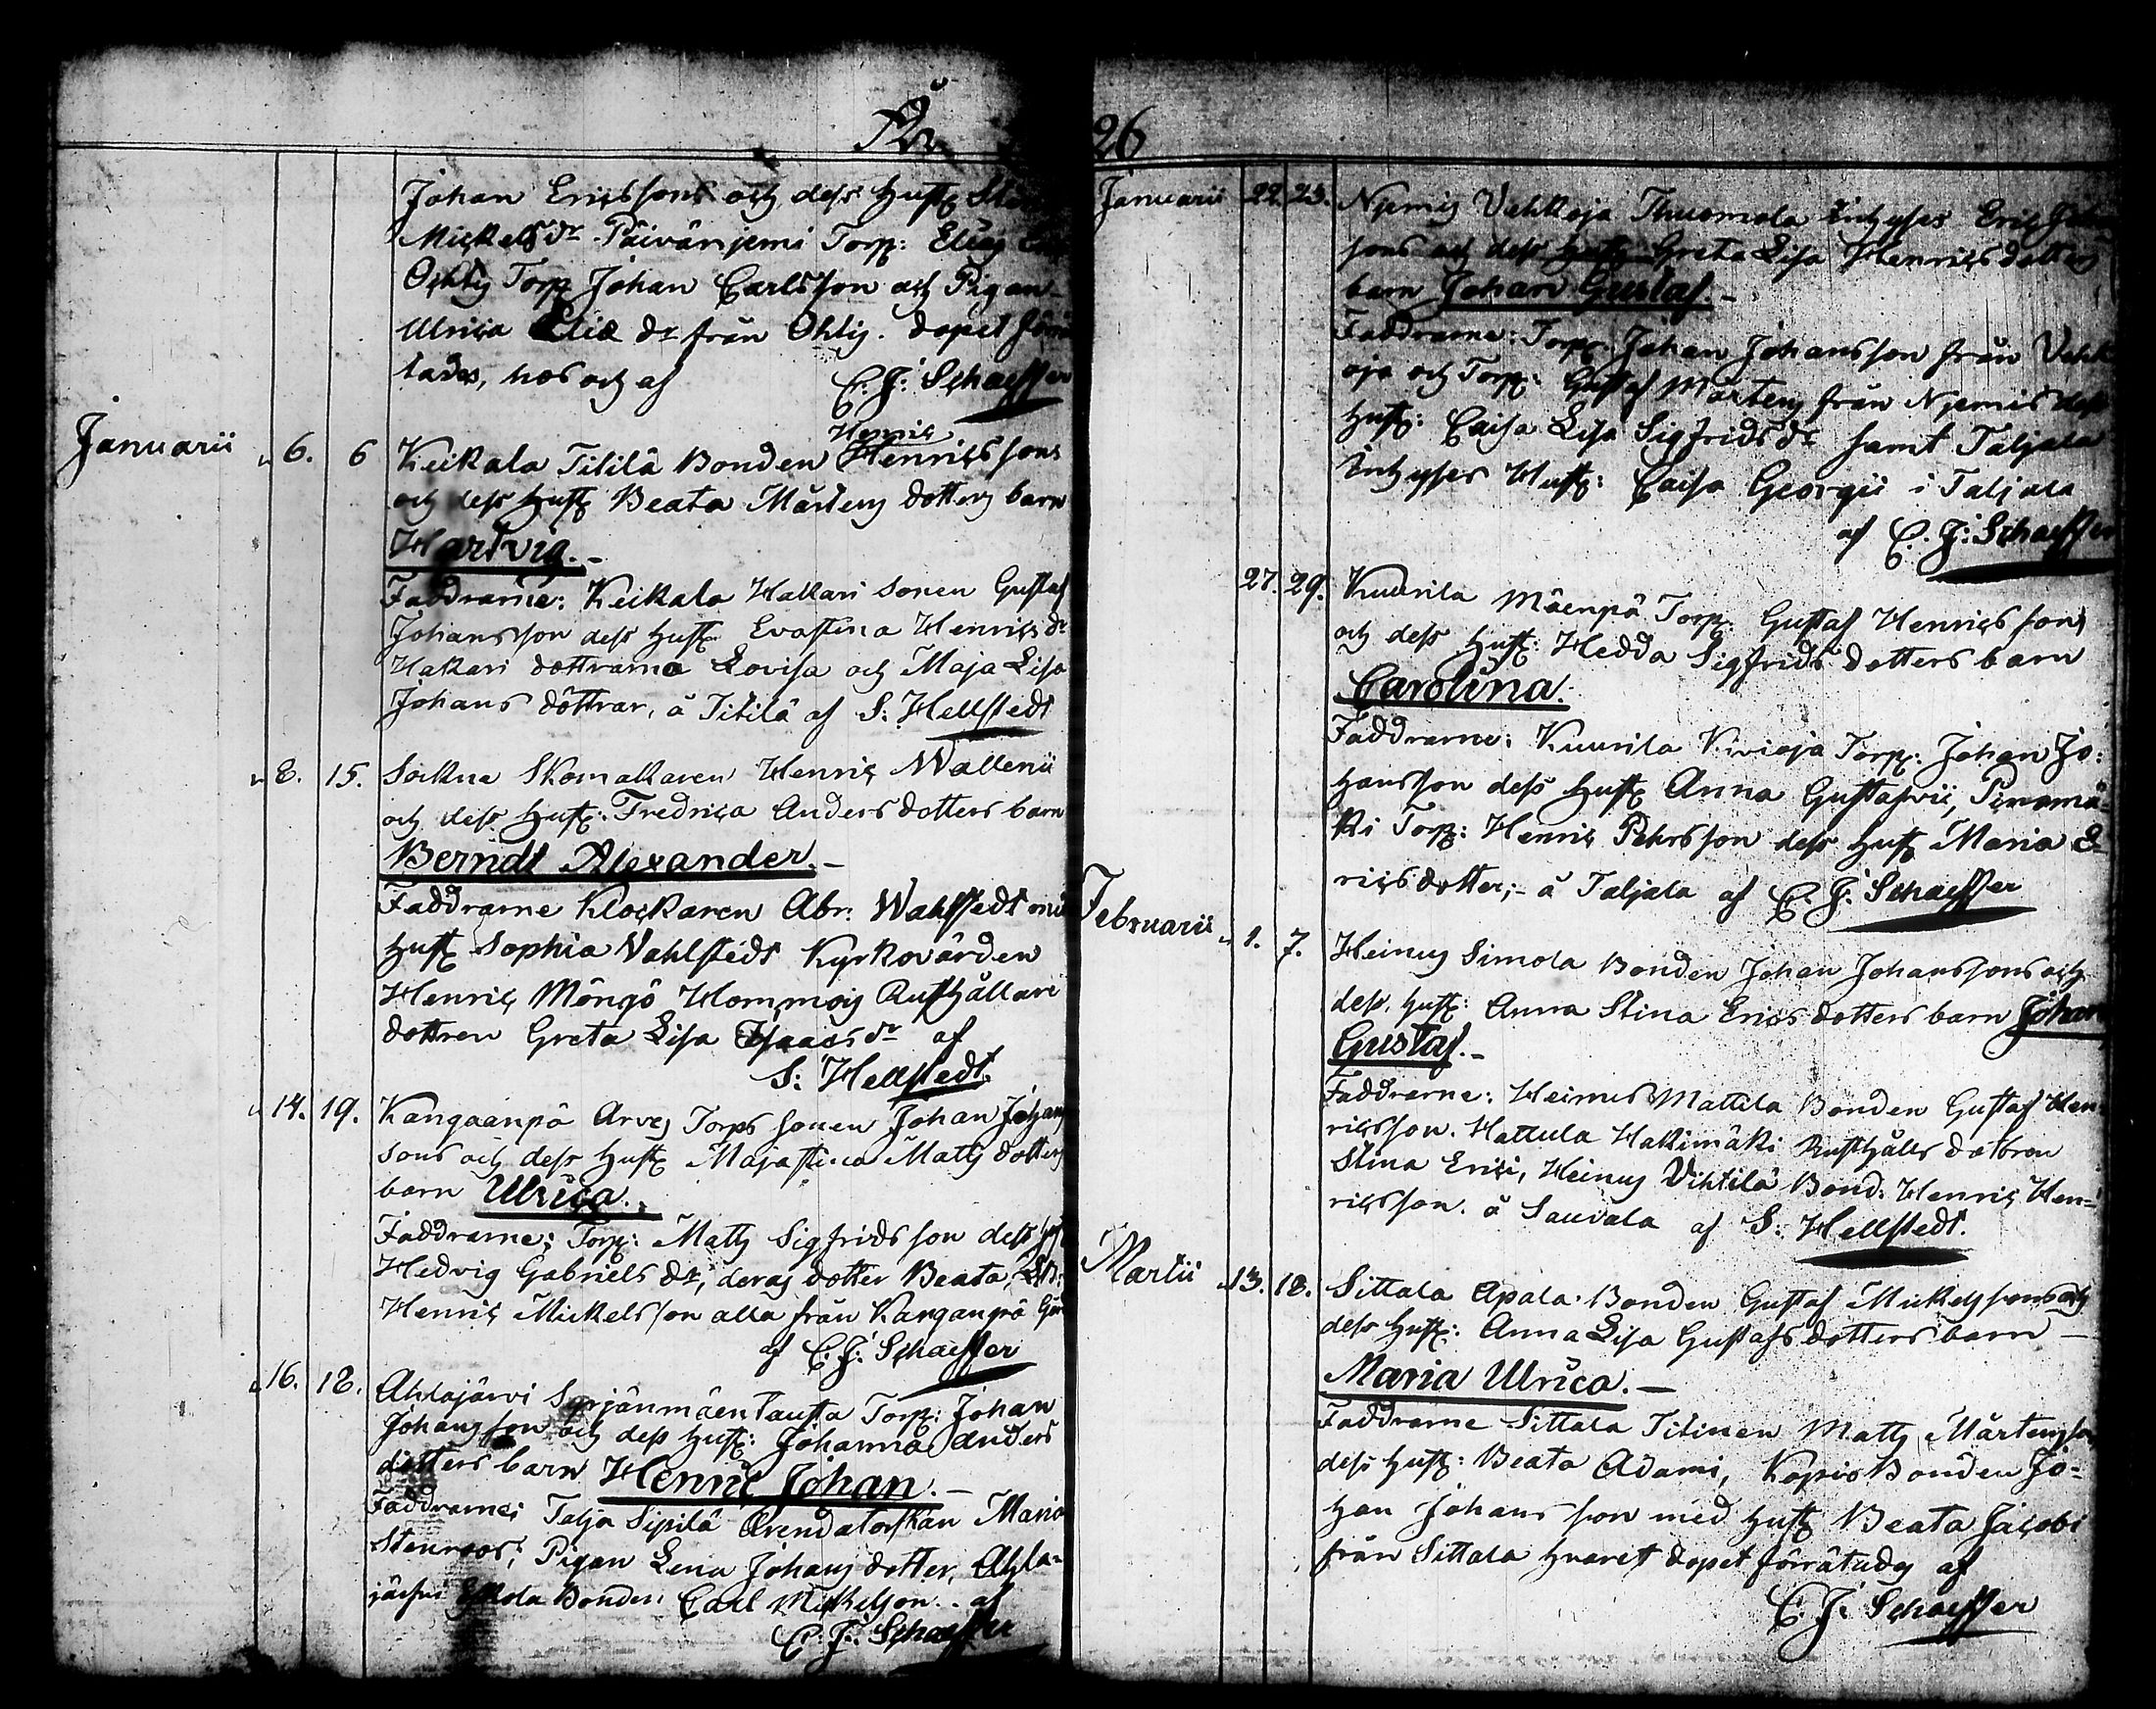 År
Johan Ericssons och dess Hust.
Mickelsdr Päivänjemi Torp: Elias
Torp Johan Carlsson och Pigan
Ulrica Eliæ dr från Ohtis. dopet förrä
tades, hos och af C. J: Schaeffer
Henric
Januarii " 6. 6 Keikala Titilä Bonden Henricssons
och dess Hust Beata Mårtens dotters barn
Hartvig.-
Faddrarne: Keikala Hakari sonen Gustaf
Johansson dess Hust Evastina Henricsdr
Hakari döttrarna Lovisa och Maja Lisa
Johans döttrar, å Titilä af S: Hellstedt
" 8. 15. Sockne Skomakaren Henric Wallenii
och dess Hust: Fredrica Anders dotters barn
Berndt Alexander.-
Faddrarne Klockaren Abr: Wahlstedt med
Hust Sophia Vahlstedt Kyrkovärden
Henric Möngö Hommois Rusthållare
dottren Greta Lisa Isaacsdr af
S: Hellstedt.
" 14. 19. Kangaanpä Arvej Torps sonen Johan Johans
sons och dess Hust Majastina Matts dotters
barn Ulrica.-
Faddrarne: Torp: Matts Sigfridsson dess Hust
Hedvig Gabriels dr, deras dotter Beata,
Henric Mickelsson alla från Kanganpä
af C. J: Schaeffer
" 16. 18. Ahlajärvi Syrjänmäentausta Torp: Johan
Johansson och dess Hust: Johanna Anders
dotters barn Henric Johan.-
Faddrarne: Talja Sipilä Arendatorskan Maria
Stenroos, Pigan Lena Johans dotter, Ahla-
järfvi Eskola Bonden Carl Mickelson.. af
C. J: Schaeffer
26
Januarii 22. 23. Njemis Vehkoja Thuomola Inhyses Eric Johan
sons och dess Hust Greta Lisa Henrics dotters
barn Johan Gustaf.-
Faddrarne: Torp. Johan Johansson från Vehk
oja och Torp: Gustaf Mårtens från Njemis dess
Hust: Caisa Lisa Sigfridsdr samt Taljala
Inhyses Hust: Caisa Georgii i Taljala
af C. J: Schaeffer
27. 29. Kuurila Mäenpä Torp. Gustaf Henricssons
och dess Hust: Hedda Sigfrids dotters barn
Carolina.
Faddrarne: Kuurila Kivioja Torp: Johan Jo:
hansson dess Hust Anna Gustafvii, Penomä-
ki Torp: Henric Pehrsson dess Hust Maria E-
ricsdotter;- å Taljala af C. J: Schaeffer
Februarii " 1. 7. Heinus Simola Bonden Johan Johanssons och
dess Hust: Anna Stina Erics dotters barn Johan
Gustaf.-
Faddrarne: Heinus Mattila Bonden Gustaf Hen-
ricsson. Hattula Hakimäki Rusthålls dottren
Stina Erici, Heinus Vihtilä Bond: Henric Hen-
ricsson. å Sauvala af S: Hellstedt.
Martii " 13. 18. Sittala Apala Bonden Gustaf Mickelssons och
dess Hust: Anna Lisa Gustafs dotters barn -
Maria Ulrica.-
Faddrarne Sittala Titinen Matts Mårtensson
dess Hust: Beata Adami, Kopsio Bonden Jo-
han Johansson med Hust Beata Jacobi
från Sittala hvarest dopet förrätades af
C. J: Schaeffer